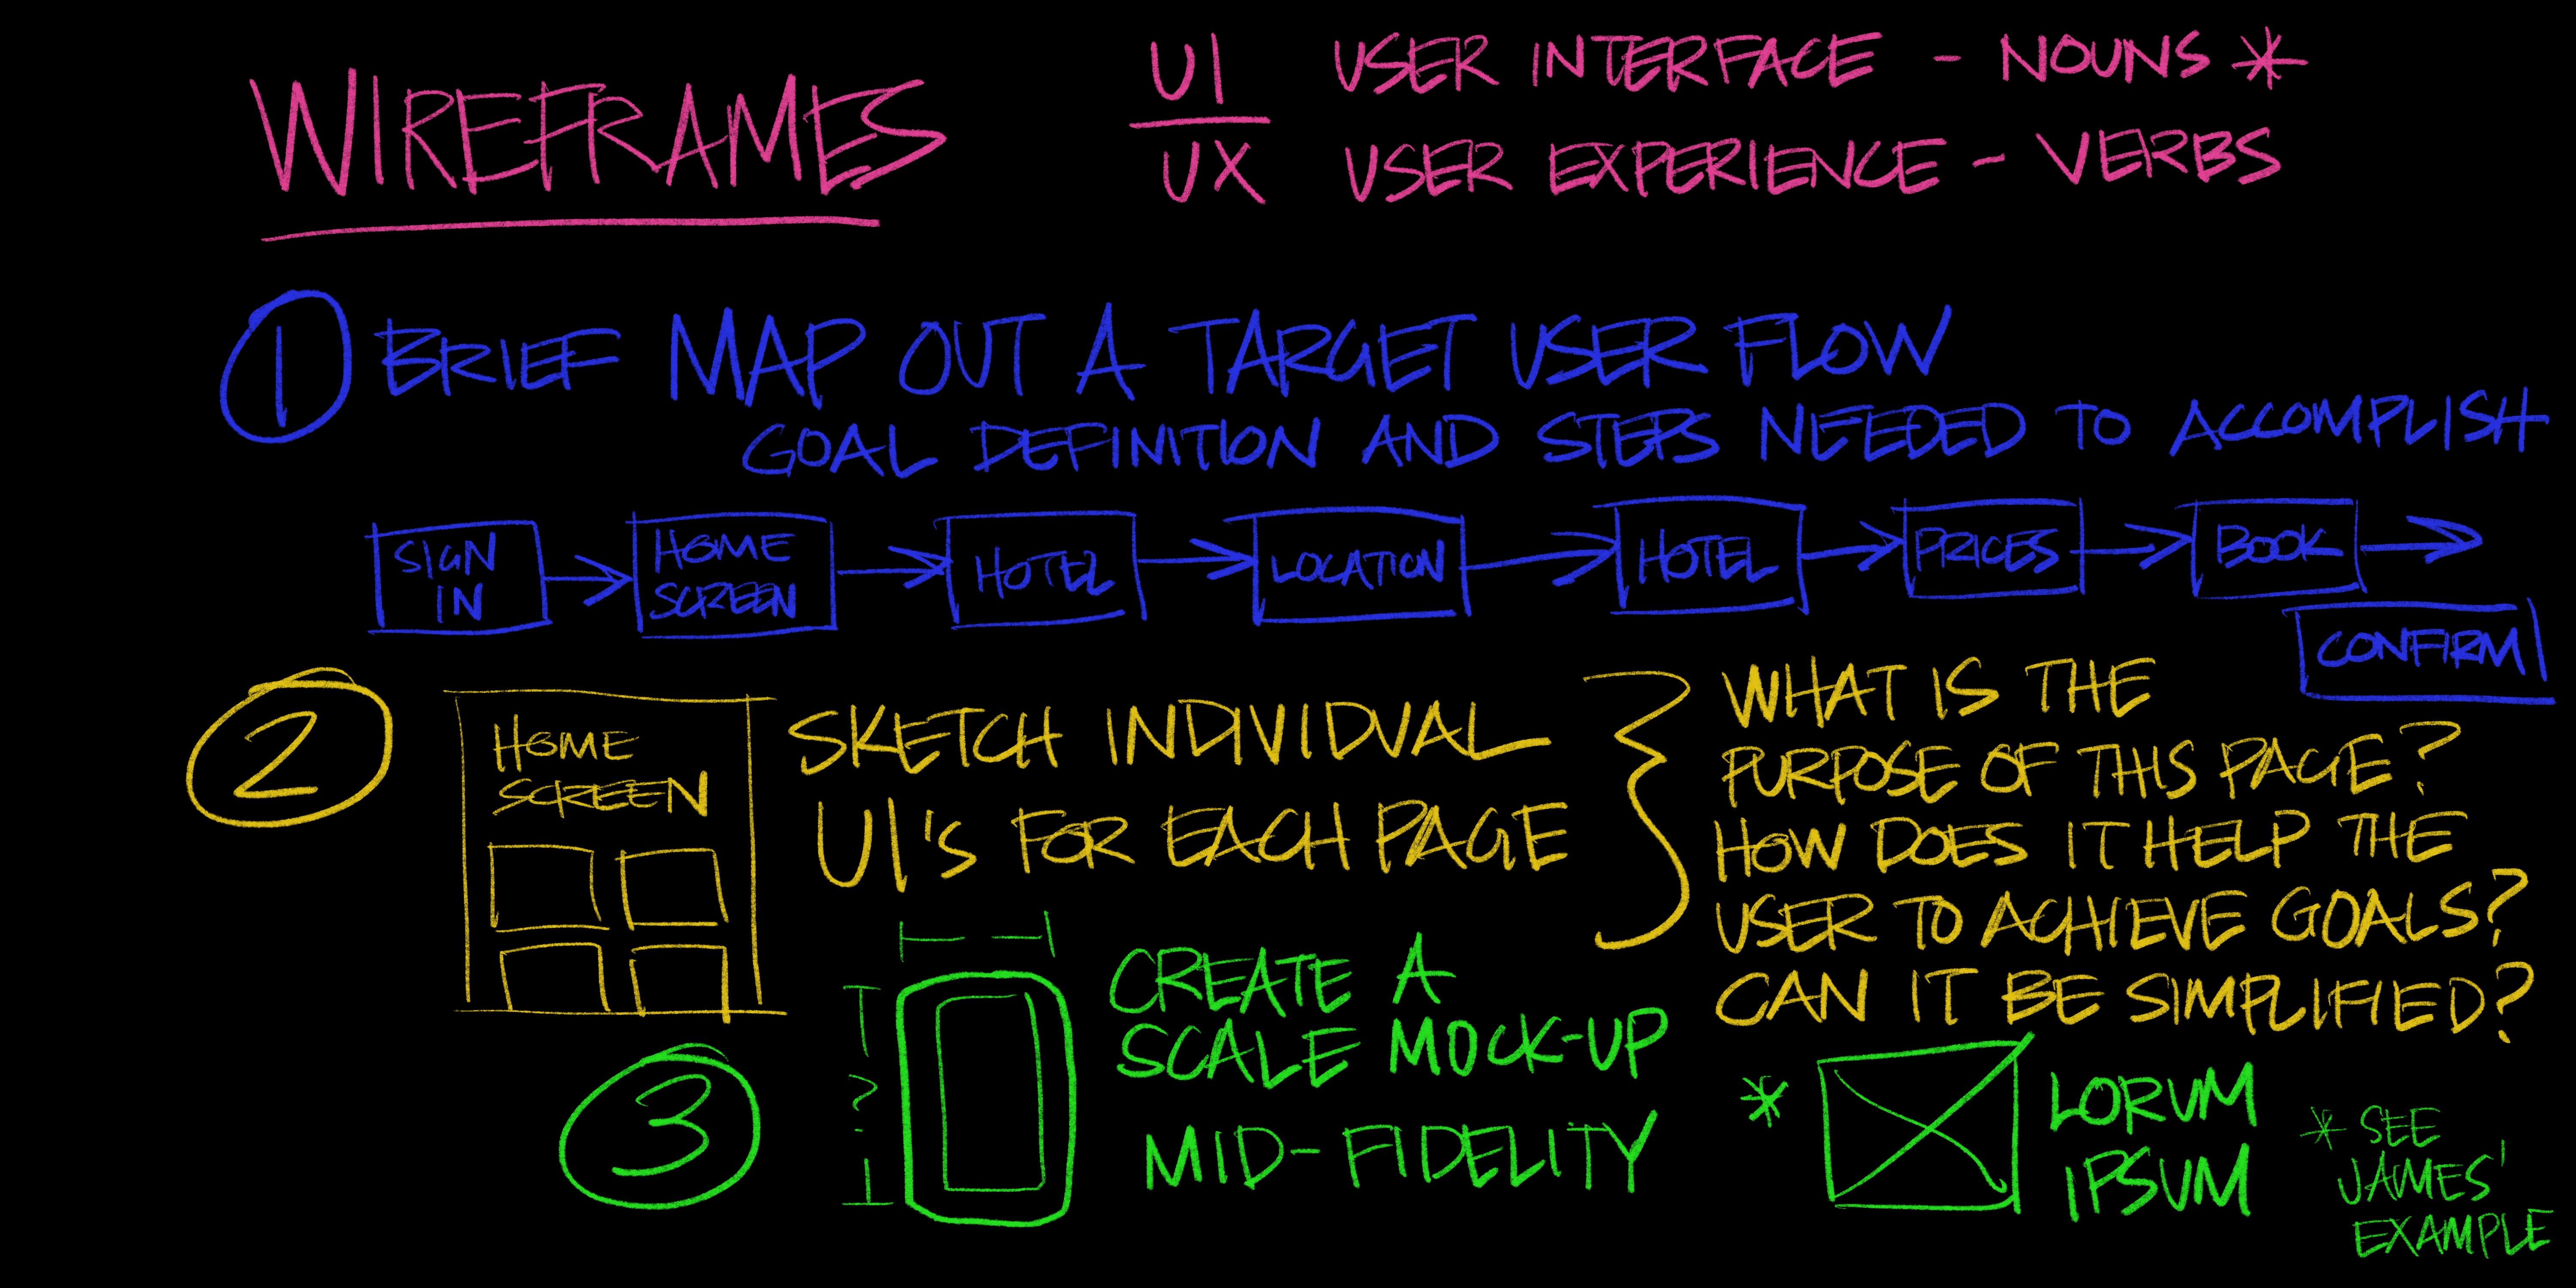 WIREFRAMES
UI USER INTERFACE - NOUNS *
UX USER EXPERIENCE - VERBS
1 BRIEF MAP OUT A TARGET USER FLOW
GOAL DEFINITION AND STEPS NEEDED TO ACCOMPLISH
SIGN
IN
HOME
SCREEN
HOTEL
LOCATION
HOTEL
PRICES
BOOK
CONFIRM
2
HOME
SCREEN
SKETCH INDIVIDUAL
UI'S FOR EACH PAGE
WHAT IS THE
PURPOSE OF THIS PAGE?
HOW DOES IT HELP THE
USER TO ACHIEVE GOALS?
CAN IT BE SIMPLIFIED?
3
?
CREATE A
SCALE MOCK-UP
MID-FIDELITY
*
LORUM
IPSUM
* SEE
JAMES'
EXAMPLE